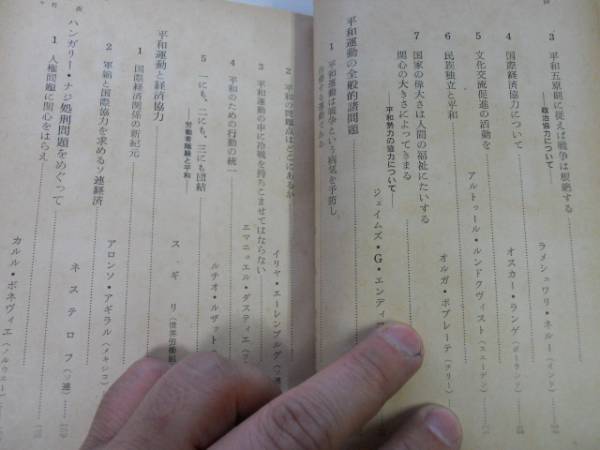 3 平和五原則に従えば戦争は根絶する
―政治協力について―
ラメシュワリ・ネルー（インド）
4 国際経済協力について
オスカー・ランゲ（ポーランド）
5 文化交流促進の活動を
アルトゥール・ルンドクヴィスト（スエーデン）
6 民族独立と平和
オルガ・ポブレーテ（チリー）
7 国家の偉大さは人間の福祉にたいする
関心の大きさによってきまる
―平和勢力の協力について―
ジェイムズ・G・エンディコ
平和運動の全般的諸問題
1 平和運動は戦争という病気を予防し、
治療する運動である
2 平和の問題点はどこにあるか
イリヤ・エーレンブルグ（ソ連）
3 平和運動の中に冷戦を持ちこませてはならない
エマニュエル・ダスティエ
4 平和のための行動の統一
ルチオ・ルザット
5 一にも、二にも、三にも団結
―労働者階級と平和―
スギリ
平和運動と経済協力
1 国際経済関係の新紀元
アロンソ・アギラル（メキシコ）
2 軍縮と国際協力を求めるソ連経済
ネステロフ（ソ連）
ハンガリー・ナジ処刑問題をめぐって
1 人権問題に関心をはらえ
カルル・ボネヴィエ（ノルウエー）